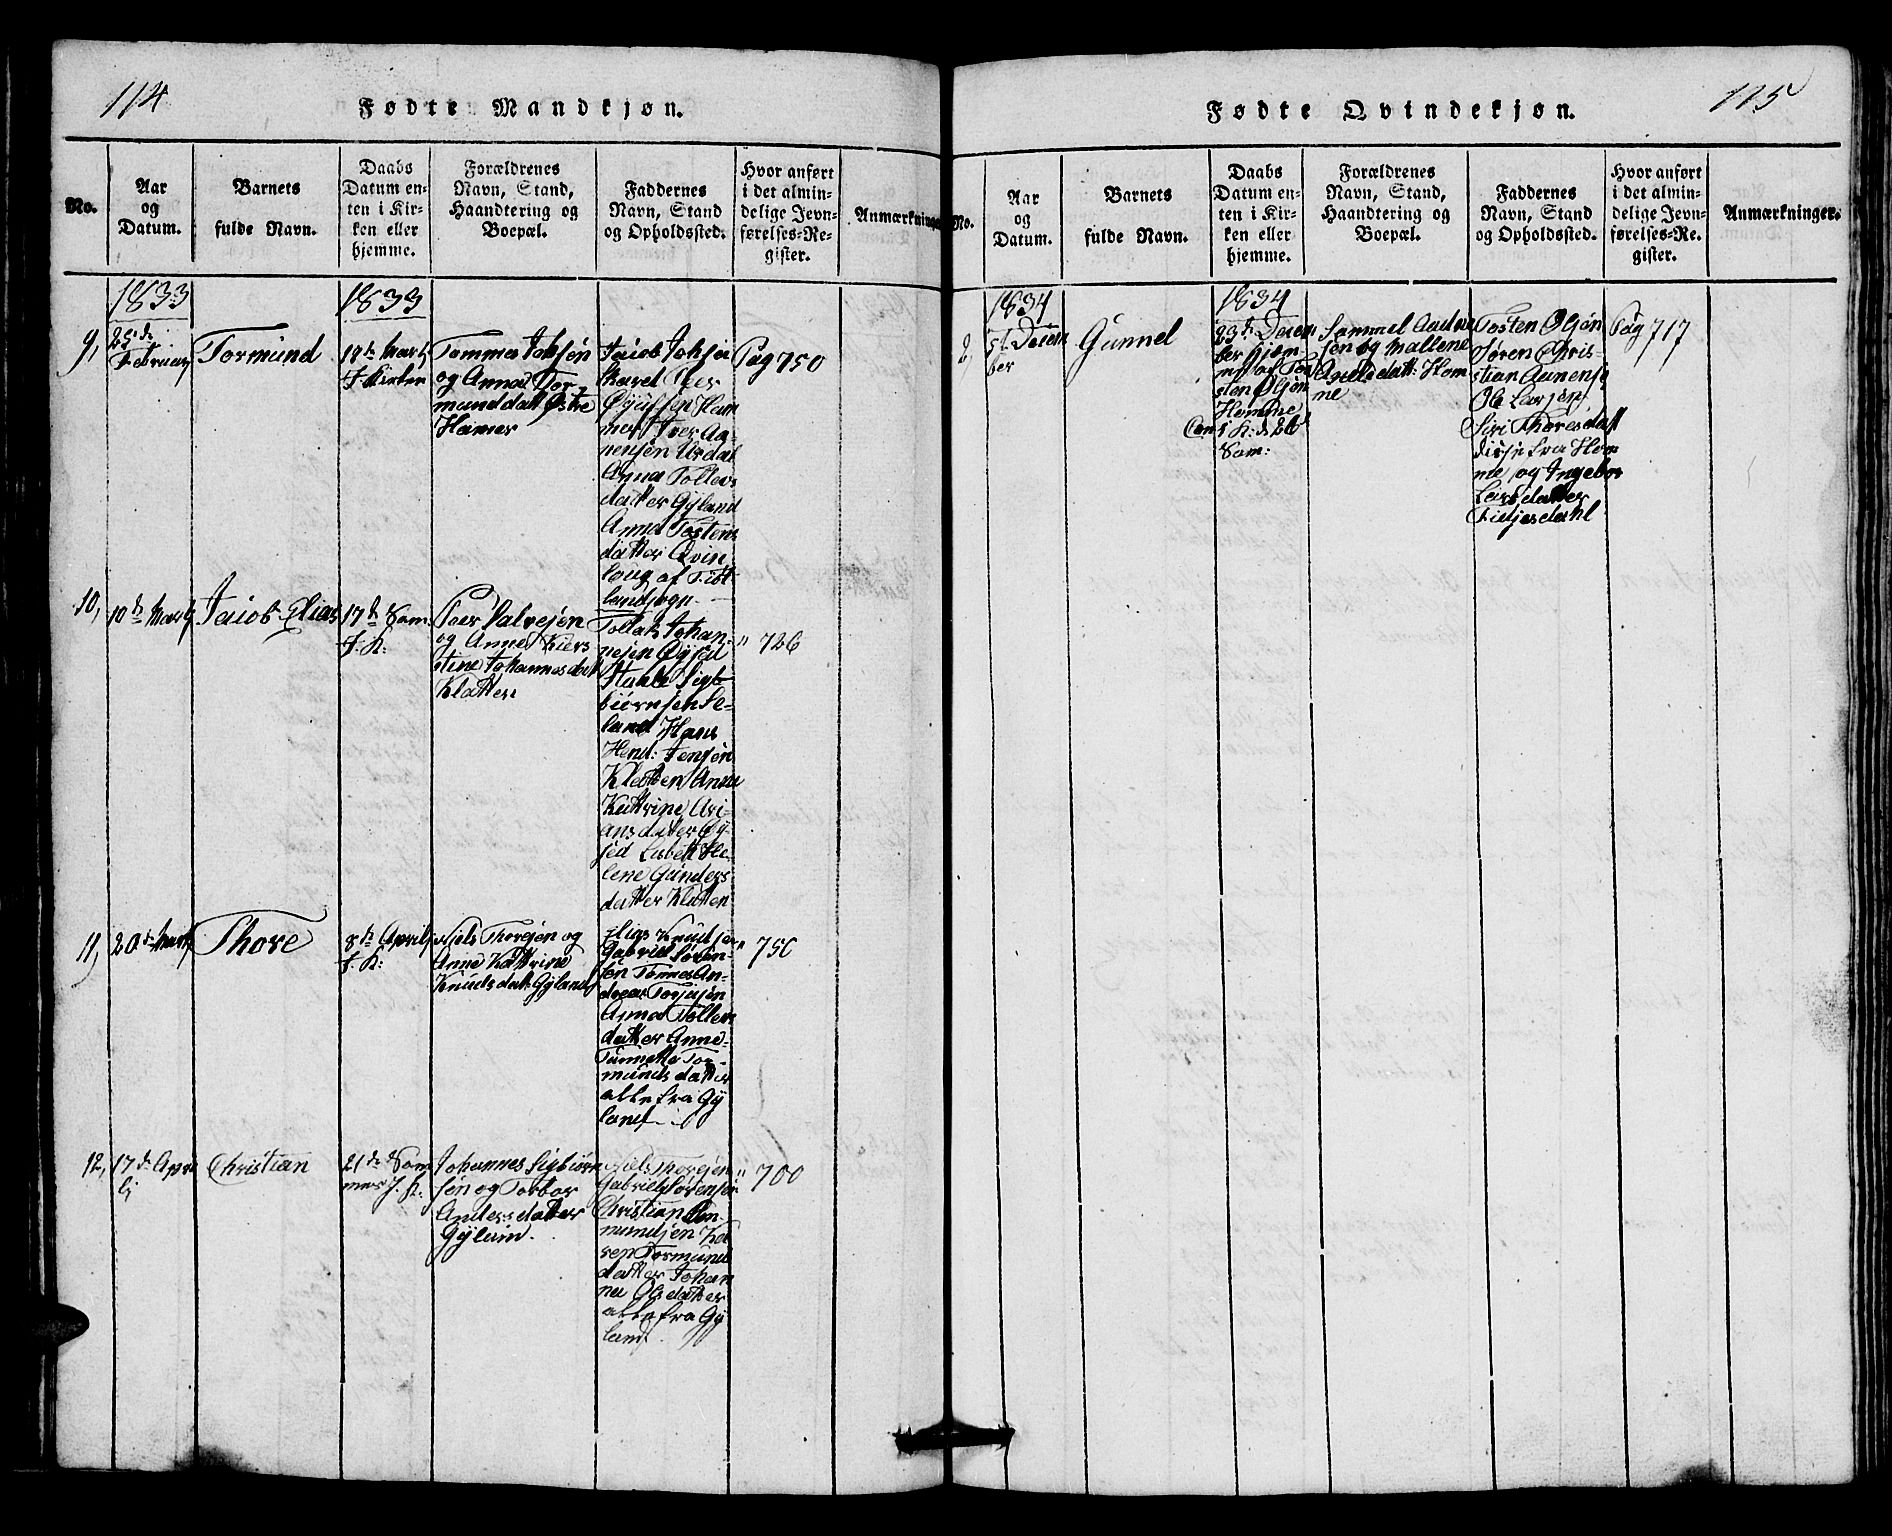 114
Fødte Mandkjøn.
No.
Aar
og
Datum.
Barnets
fulde Navn.
Daabs
Datum en-
ten i Kir-
ken eller
hjemme.
Forældrenes
Navn, Stand,
Haandtering og
Boepæl.
Faddernes
Navn, Stand
og Opholdssted.
Hvor anført
i det almin-
delige Jevn-
førelses-Re-
gister.
Anmærkninger
1833
1833
9,
25de
Februar
Tormund
18de Marti
J. Kirken
Tommes Johsen
og Anna Tor-
munddatt Østre
Hamer
Jaiob Johsen
Peer
Ham
mer Iver Aa-
nensen Urdal
Anna Tollevs
datter Gyland
Anna Tostens
datter Qvin
laug af Fiot
landsogn.
Pag 750
10,
10de Marti
Jaiob Elias
17de Sam:
J. K:
Peer Salvesen
og Anne Kiers
tine Johannesdat
Klatten
Tollak Johan-
nesen Øysæd
Sigb
biørnsen Se-
land Hans
Hend: Jensen
Klatten Anne
Kattrine Ari-
ansdatter Øy-
sed Lisbett He-
lene Gunders
datter Klatten
" 726
11,
20de Marti
Thore
8de April
J. K:
Niels Thoresen og
Anne Kattrine
Knudsdatt: Gyland
Elias Knudsen
Gabriel Søren-
sen Tønnes An-
dreas Torjusen
Anna Tollevs
datter Anne
Tunnette Tor-
munds datter
alle fra Gy
land
" 750
12,
17de Apri
li
Christian
21de Sam
mes J. K.
Johannes Sigbiørn
sen og Torbor
Andersdatter
Gyland.
Niels Thoresen
Gabriel Sørensen
Christian Om-
mundsen
ren Tormunds
datter Johan
na Olsdatter
alle fra Gy
land.
" 700
115
Fødte Qvindekjøn.
No.
Aar
og
Datum.
Barnets
fulde Navn.
Daabs
Datum en-
ten i Kir-
ken eller
hjemme.
Forældrenes
Navn, Stand,
Haandtering og
Boepæl.
Faddernes
Navn, Stand
og Opholdssted.
Hvor anført
i det almin-
delige Jevn-
førelses-Re-
gister.
Anmærkninger.
1834
1834
2,
5te Decem
ber
Gunnel
23de Decem
ber hjem-
me af Tor
sten Olsen
Homme
Con i K: d. 26
Sam:
Sammel Aadne
sen og Mallene
datt: Hom
me
Tosten Olsen
Søren Chris-
tian Aanense
Ole Larsen
Siri Thoresdatt
disse fra Hom
me og Ingebor
Larsdatter
Fidjesdahl
Pag 717